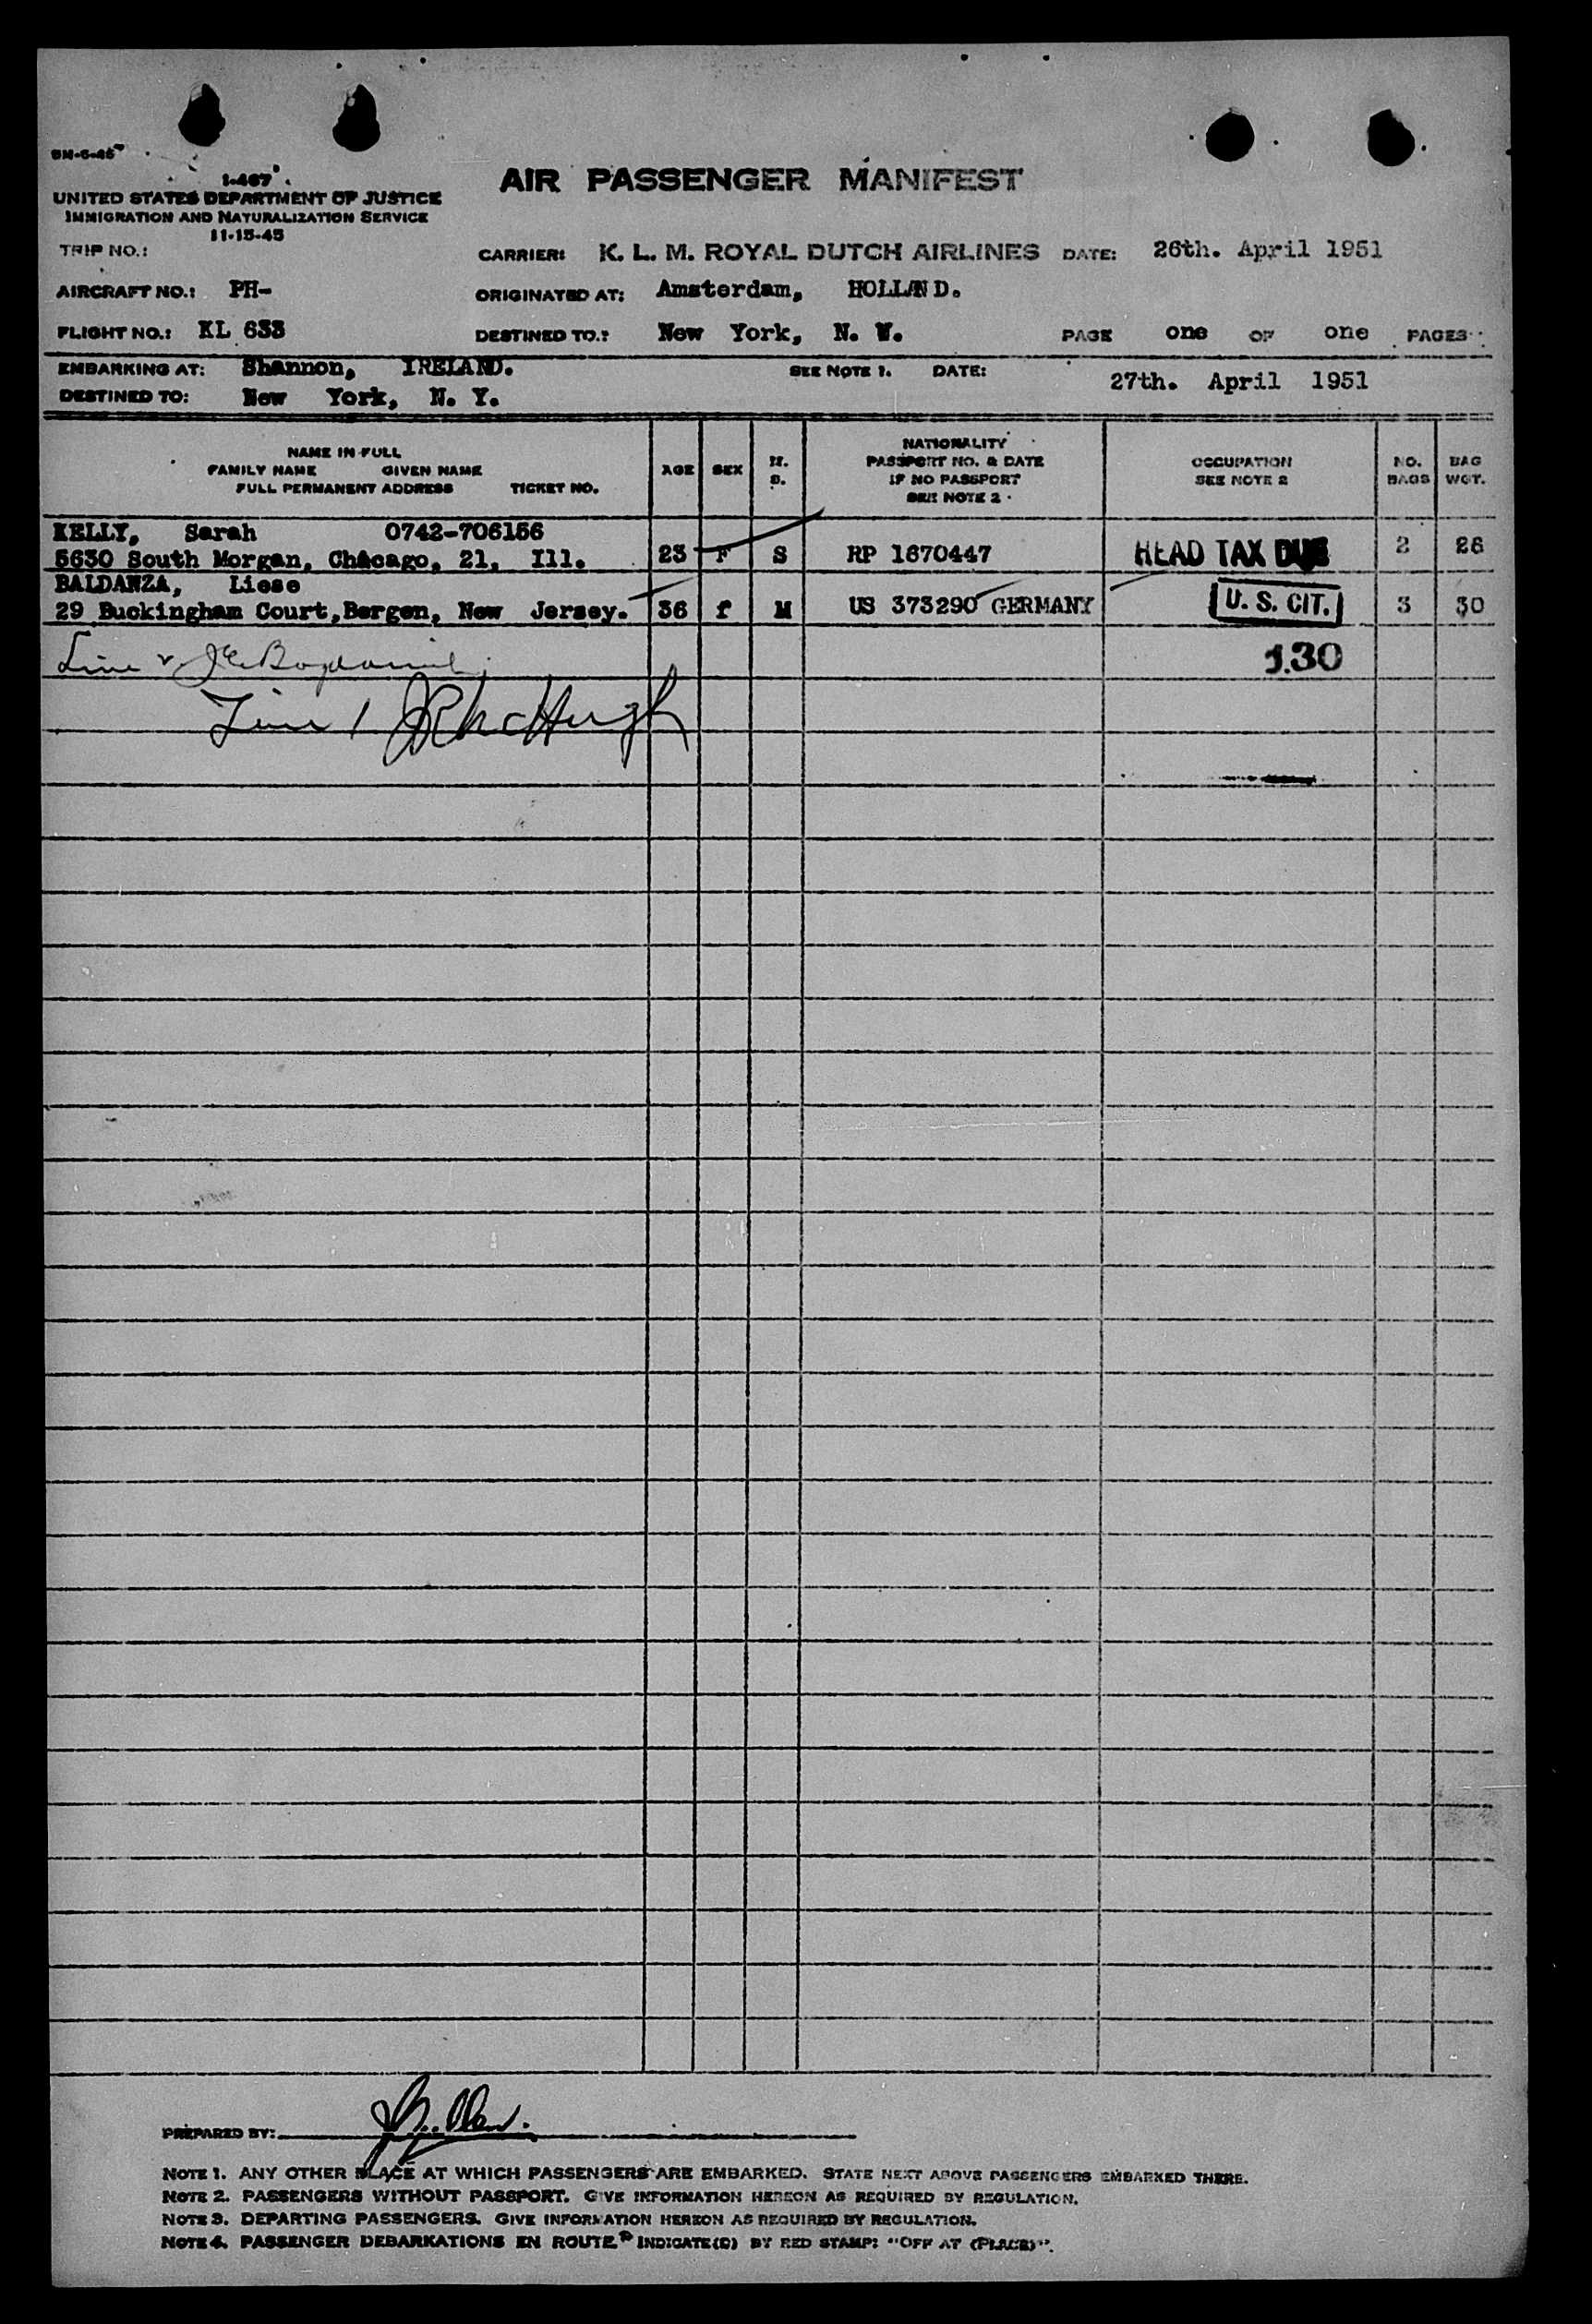 I-467
UNITED STATES DEPARTMENT OF JUSTICE
IMMIGRATION AND NATURALIZATION SERVICE
11-15-45
AIR PASSENGER MANIFEST
TRIP NO.:
CARRIER: K. L. M. ROYAL DUTCH AIRLINES DATE: 26th. April 1951
AIRCRAFT NO.: PH-
ORIGINATED AT: Amsterdam, HOLLAND.
FLIGHT NO.: KL 633
DESTINED TO.: New York, N. Y.
PAGE one OF one PAGES
EMBARKING AT: Shannon, IRELAND.
SEE NOTE 1. DATE: 27th. April 1951
DESTINED TO: New York, N. Y.
NAME IN FULL
FAMILY NAME GIVEN NAME
FULL PERMANENT ADDRESS TICKET NO.
AGE
SEX
NATIONALITY
PASSPORT NO. & DATE
IF NO PASSPORT
SEE NOTE 2
OCCUPATION
SEE NOTE 2
NO.
BAGS
BAG
WGT.
KELLY, Sarah 0742-706156
5630 South Morgan, Chicago, 21, Ill. 23 F S RP 1670447 HEAD TAX DUE 2 26
BALDANZA, Liese
29 Buckingham Court, Bergen, New Jersey. 36 f M US 373290 GERMANY U. S. CIT. 3 30
Line
130
Line 1 McHugh
PREPARED BY:
NOTE 1. ANY OTHER PLACE AT WHICH PASSENGERS ARE EMBARKED. STATE NEXT ABOVE PASSENGERS EMBARKED THERE.
NOTE 2. PASSENGERS WITHOUT PASSPORT. GIVE INFORMATION HEREON AS REQUIRED BY REGULATION.
NOTE 3. DEPARTING PASSENGERS. GIVE INFORMATION HEREON AS REQUIRED BY REGULATION.
NOTE 4. PASSENGER DEBARKATIONS EN ROUTE INDICATE(D) BY RED STAMP: "OFF AT (PLACE)".